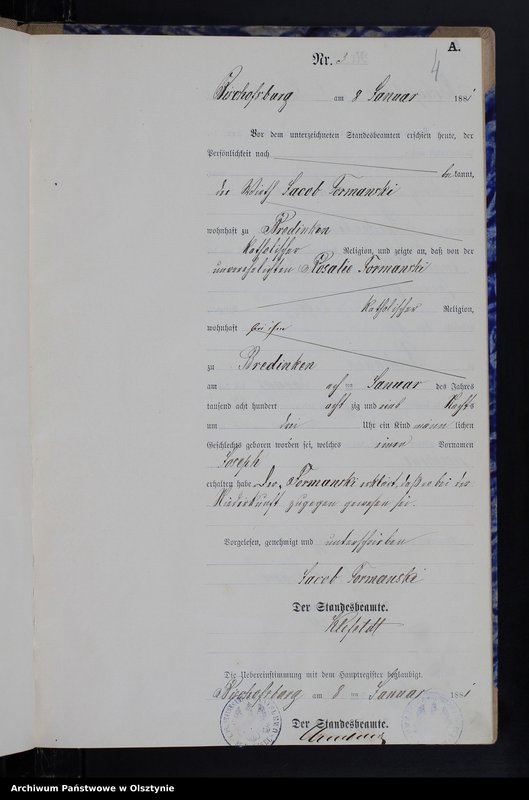 A.
4
Nr. 3
Bischofsburg am 8 Januar 1881
Vor dem unterzeichneten Standesbeamten erschien heute, der
Persönlichkeit nach
be kannt,
der Wirth Jacob Tormanski
wohnhaft zu Bredinken
katholischer Religion, und zeigte an, daß von der
unverehelichten Rosalie Tormanski
katholischer Religion,
wohnhaft bei ihm
zu Bredinken
am ach ten Januar des Jahres
tausend acht hundert acht zig und eins Nachts
um drei Uhr ein Kind männ lichen
Geschlechts geboren worden sei, welches einen Vornamen
Joseph
erhalten habe. Der Tormanski erklärt, daß er bei der
Niederkunft zugegen gewesen sei.
Vorgelesen, genehmigt und unterschrieben
Jacob Tormanski
Der Standesbeamte.
Klefeldt
Die Uebereinstimmung mit dem Hauptregister beglaubigt.
Bischofsburg am 8 ten Januar 1881
Der Standesbeamte.
Archiwum Państwowe w Olsztynie